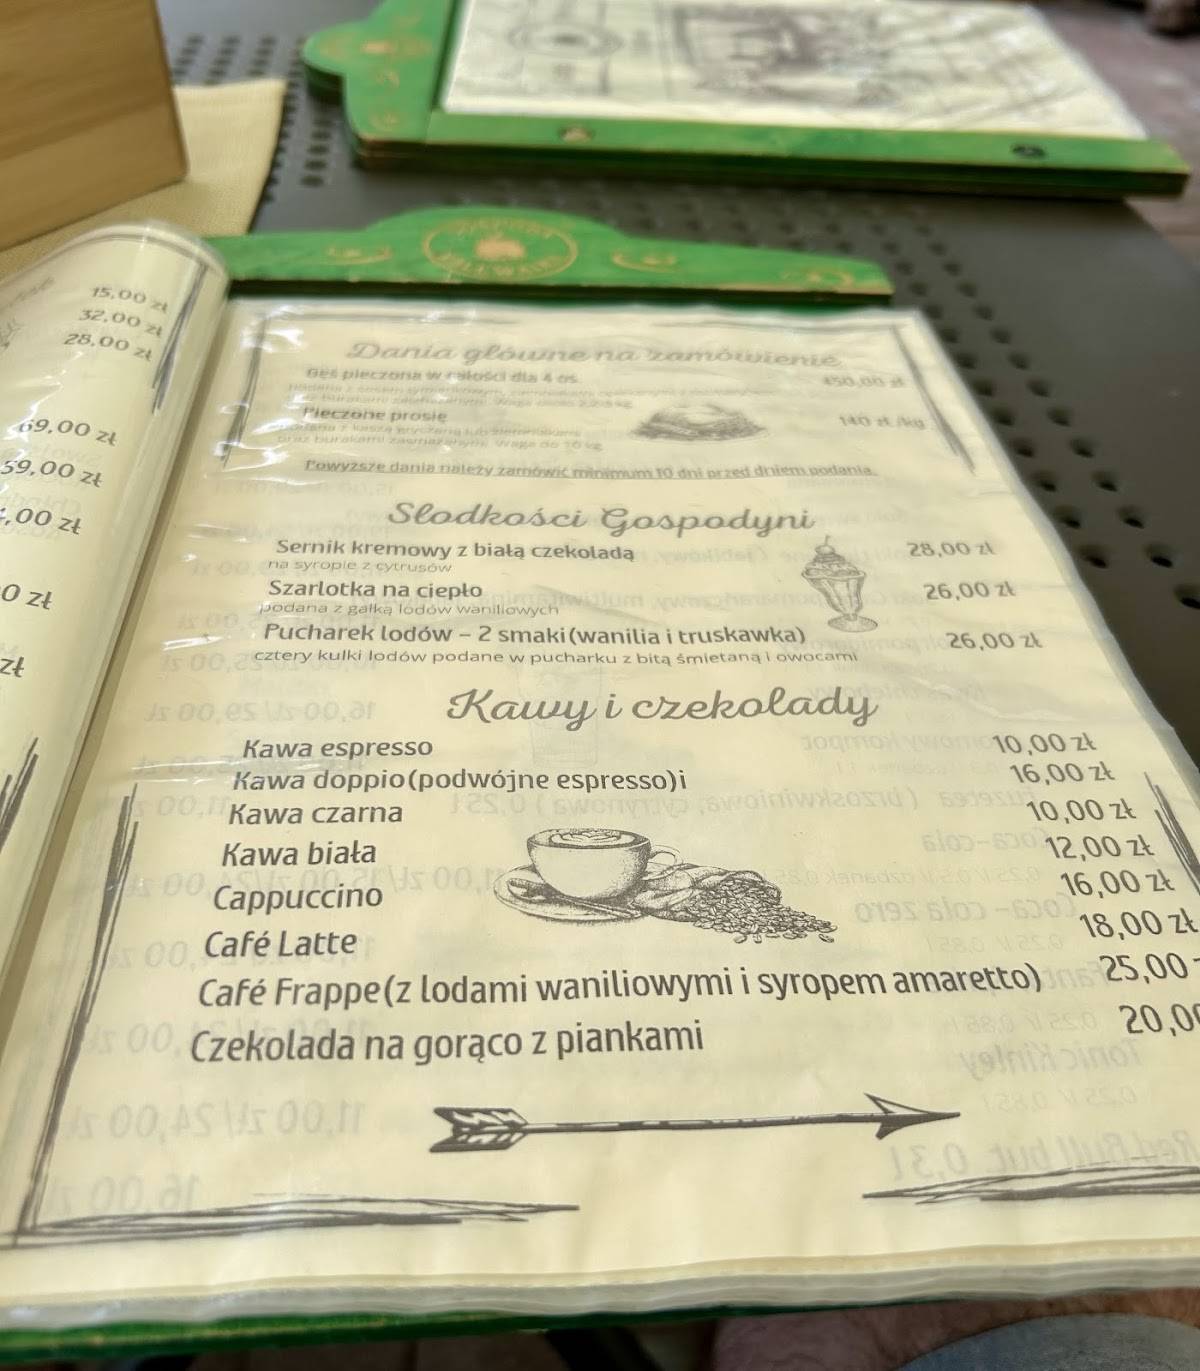 15,00 zł
32,00 zł
28,00 zł
69,00 zł
59,00 zł
,00 zł
0 zł
zł
Dania główne na zamówienie
Gęś pieczona w całości dla 4 os. 450,00 zł
Pieczone prosię 140 zł/kg
oraz burakami zasmażanymi. Waga do 10 kg
Powyższe dania należy zamówić minimum 10 dni przed dniem podania.
Słodkości Gospodyni
Sernik kremowy z białą czekoladą 28,00 zł
na syropie z cytrusów
Szarlotka na ciepło 26,00 zł
podana z gałką lodów waniliowych
Pucharek lodów – 2 smaki(wanilia i truskawka) 26,00 zł
cztery kulki lodów podane w pucharku z bitą śmietaną i owocami
Kawy i czekolady
Kawa espresso 10,00 zł
Kawa doppio(podwójne espresso)i 16,00 zł
Kawa czarna 10,00 zł
Kawa biała 12,00 zł
Cappuccino 16,00 zł
Café Latte 18,00 zł
Café Frappe(z lodami waniliowymi i syropem amaretto) 25,00
Czekolada na gorąco z piankami 20,00